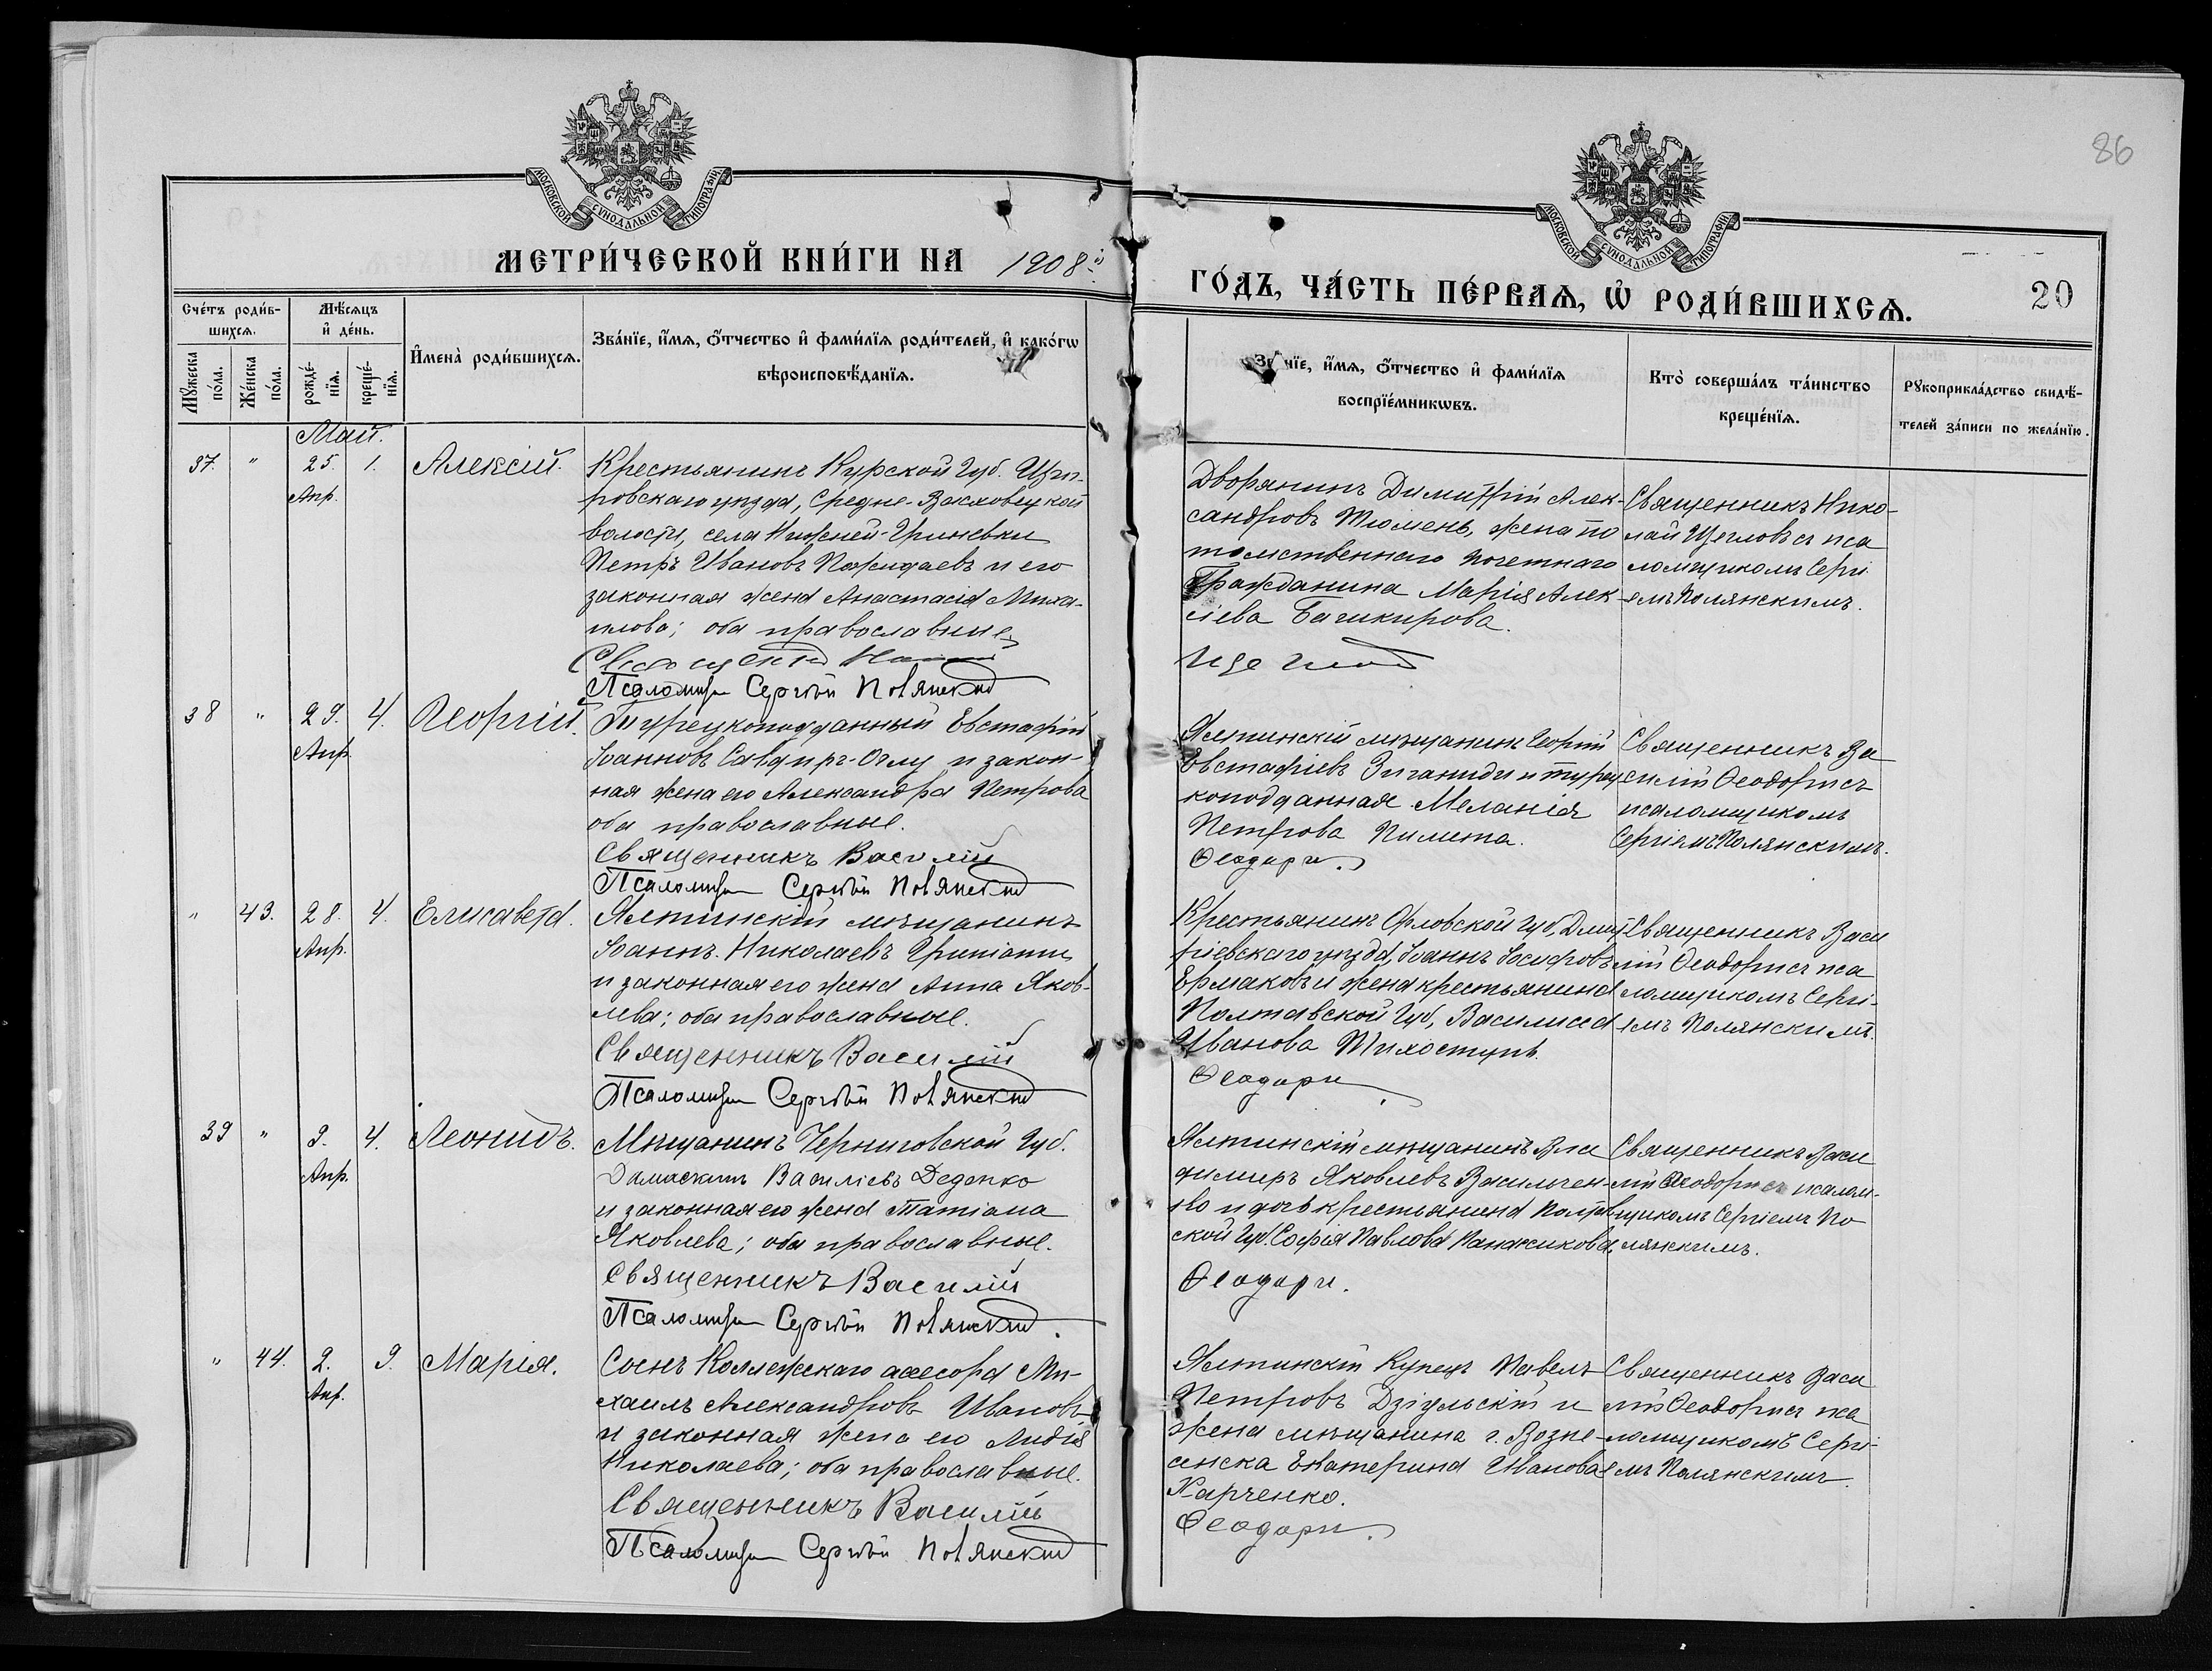 86
МОСКОВСКОЙ СѴНОДАЛЬНОЙ ТИПОГРАФІИ
МОСКОВСКОЙ СѴНОДАЛЬНОЙ ТИПОГРАФІИ
МЕТРИ́ЧЕСКОЙ КНИ́ГИ НА 1908й
ГО́ДЪ, ЧА́СТЬ ПЕ́РВАѦ, Ѡ҆ РОДИ́ВШИХСѦ.
20
Сче́тъ роди́в-
шихсѧ.
Мꙋ́жеска по́ла.
Же́нска по́ла.
Мѣ́сѧцъ
и҆ де́нь.
рожде́-
нїѧ.
креще́-
нїѧ.
И҆мена̀ роди́вшихсѧ.
Зва́нїе, и҆́мѧ, ѻ҆́тчество и҆ фами́лїѧ роди́телей, и҆ како́гѡ
вѣроисповѣ́данїѧ.
Зва́нїе, и҆́мѧ, ѻ҆́тчество и҆ фами́лїѧ
воспрїе́мникѡвъ.
Кто̀ соверша́лъ та́инство
креще́нїѧ.
Рꙋкоприкла́дство свидѣ́-
телей за́писи по жела́нїю.
Май.
37. " 25. 1. Алексій.
Апр.
Крестьянинъ Курской Губ. Щиг-
ровскаго уѣзда, Средне-
волости, села Нижней-Гриневки
Петръ Ивановъ Пожидаевъ и его
законная жена Анастасія Миха-
илова; оба православные
Священникъ
Псаломщ Сергѣй Полянскій
Дворянинъ Димитрій Алек-
сандровъ Тюмень, жена по
томственнаго почетнаго
Гражданина Марія Алек-
сіева Багикирова.
Щеглов
Священникъ Нико-
лай Щегловъ съ пса
ломщикомъ Серги
емъ Полянскимъ.
38 " 29. 4. Георгій.
Апр.
Турецкоподданный Евстафій
Іоанновъ Савдиръ-Оглу и закон-
ная жена его Александра Петрова
оба православные.
Священникъ Василій
Псаломщ Сергѣй Полянскій
Ялтинскій мѣщанинъ Георгій
Евстафіевъ Зиганиди и турец
коподданная Меланія
Петрова Пилета.
Ѳеодори.
Священникъ Ва
силій Ѳеодори съ
псаломщикомъ
Сергіемъ Полянскимъ.
" 43. 28. 4. Елисавета.
Апр.
Ялтинскій мѣщанинъ
Іоаннъ Николаевъ
и законная его жена Анна Яков-
лева; оба православные.
Священникъ Василій
Псаломщ Сергѣй Полянскій
Крестьянинъ Орловской Губ, Дмит
ріевскаго уѣзда, Іоаннъ Іосифовъ
Ермаковъ и жена крестьянина
Полтавской Губ, Василиса
Иванова Тихоступъ.
Ѳеодори
Священникъ Васи
лій Ѳеодори съ пса
ломщикомъ Сергі-
емъ Полянскимъ.
39 " 9. 4. Леонидъ.
Апр.
Мѣщанинъ Черниговской Губ.
Дамаскинъ Василіевъ Деденко
и законная его жена Татіана
Яковлева; оба православные.
Священникъ Василій
Псаломщ Сергѣй Полянскій.
Ялтинскій мѣщанинъ Вла
димиръ Яковлевъ Васильчен-
ко и дочь крестьянина Полтав
ской Губ. Софія Павлова
Ѳеодори.
Священникъ Васи
лій Ѳеодори съ псалом-
щикомъ Сергіемъ По
лянскимъ.
" 44. 2. 9. Марія.
Апр.
Сынъ Коллежскаго ассесора Ми-
хаилъ Александровъ Ивановъ
и законная жена его Лидія
Николаева; оба православные.
Священникъ Василій
Псаломщ Сергѣй Полянскій
Ялтинскій Купецъ Павелъ
Петровъ Дзіульскій и
жена мѣщанина г. Возне-
сенска Екатерина Иванова
Харченко.
Ѳеодори.
Священникъ Васи
лій Ѳеодори съ пса
ломщикомъ Сергі-
емъ Полянскимъ.